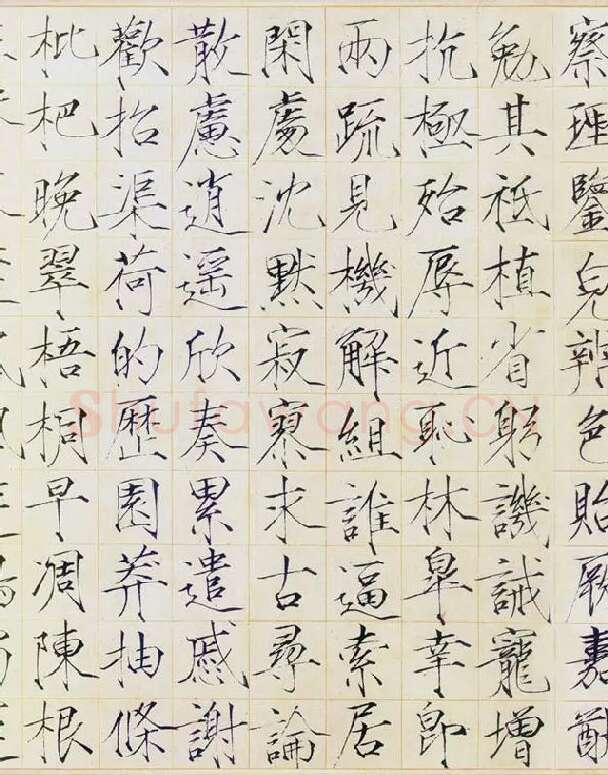 察理鑒皃辨色貽厥嘉猷
勉其祗植省躬譏誡寵增
抗極殆辱近恥林皐幸即
兩疏見機解組誰逼索居
閑處沈默寂寥求古尋論
散慮逍遥欣奏累遣慼謝
歡招渠荷的歷園莽抽條
枇杷晚翠梧桐早凋陳根
Shufawang.CN